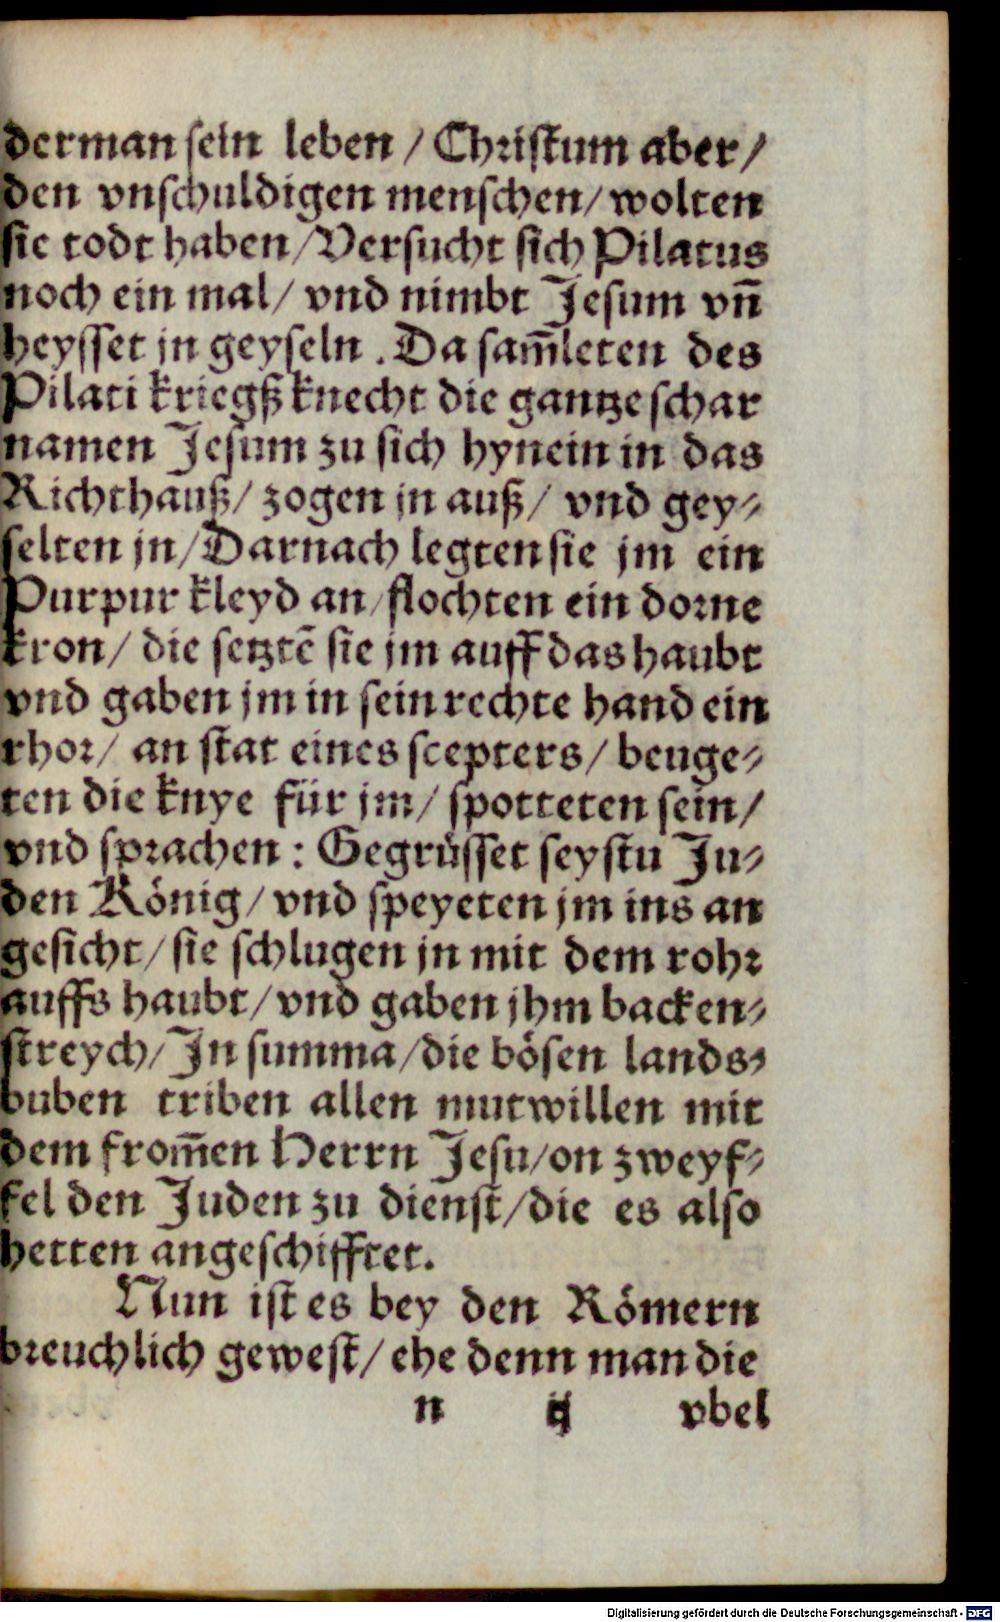 derman sein leben / Christum aber /
den vnschuldigen menschen / wolten
sie todt haben / Versucht sich Pilatus
noch ein mal / vnd nimbt Jesum vñ
heysset jn geyseln . Da sam̃leten des
Pilati kriegßknecht die gantze schar
namen Jesum zu sich hynein in das
Richthauß / zogen jn auß / vnd gey⸗
selten jn / Darnach legten sie jm ein
Purpur kleyd an / flochten ein dorne
kron / die setztē sie jm auff das haubt
vnd gaben jm in sein rechte hand ein
rhor / an stat eines scepters / beuge⸗
ten die knye für jm / spotteten sein /
vnd sprachen : Gegrüsset seystu Ju⸗
den König / vnd speyeten jm ins an
gesicht / sie schlugen jn mit dem rohr
auffs haubt / vnd gaben jhm backen⸗
streych / In summa / die bösen lands⸗
buben triben allen mutwillen mit
dem from̃en Herrn Jesu / on zweyf⸗
fel den Juden zu dienst / die es also
hetten angeschifftet.
Nun ist es bey den Römern
breuchlich gewest / ehe denn man die
n ij vbel
Digitalisierung gefördert durch die Deutsche Forschungsgemeinschaft - DFG